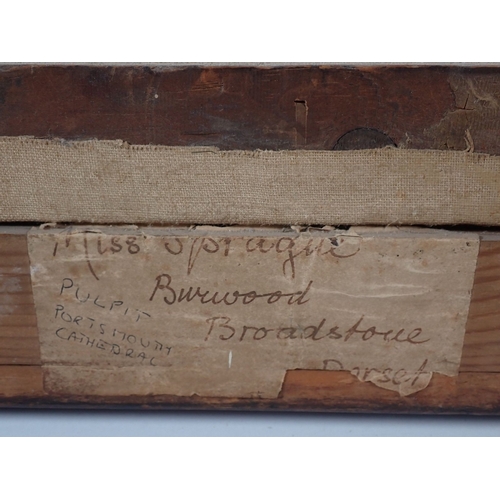 Miss Sprague
Burwood
Broadstone
Dorset
PULPIT
PORTSMOUTH
CATHEDRAL